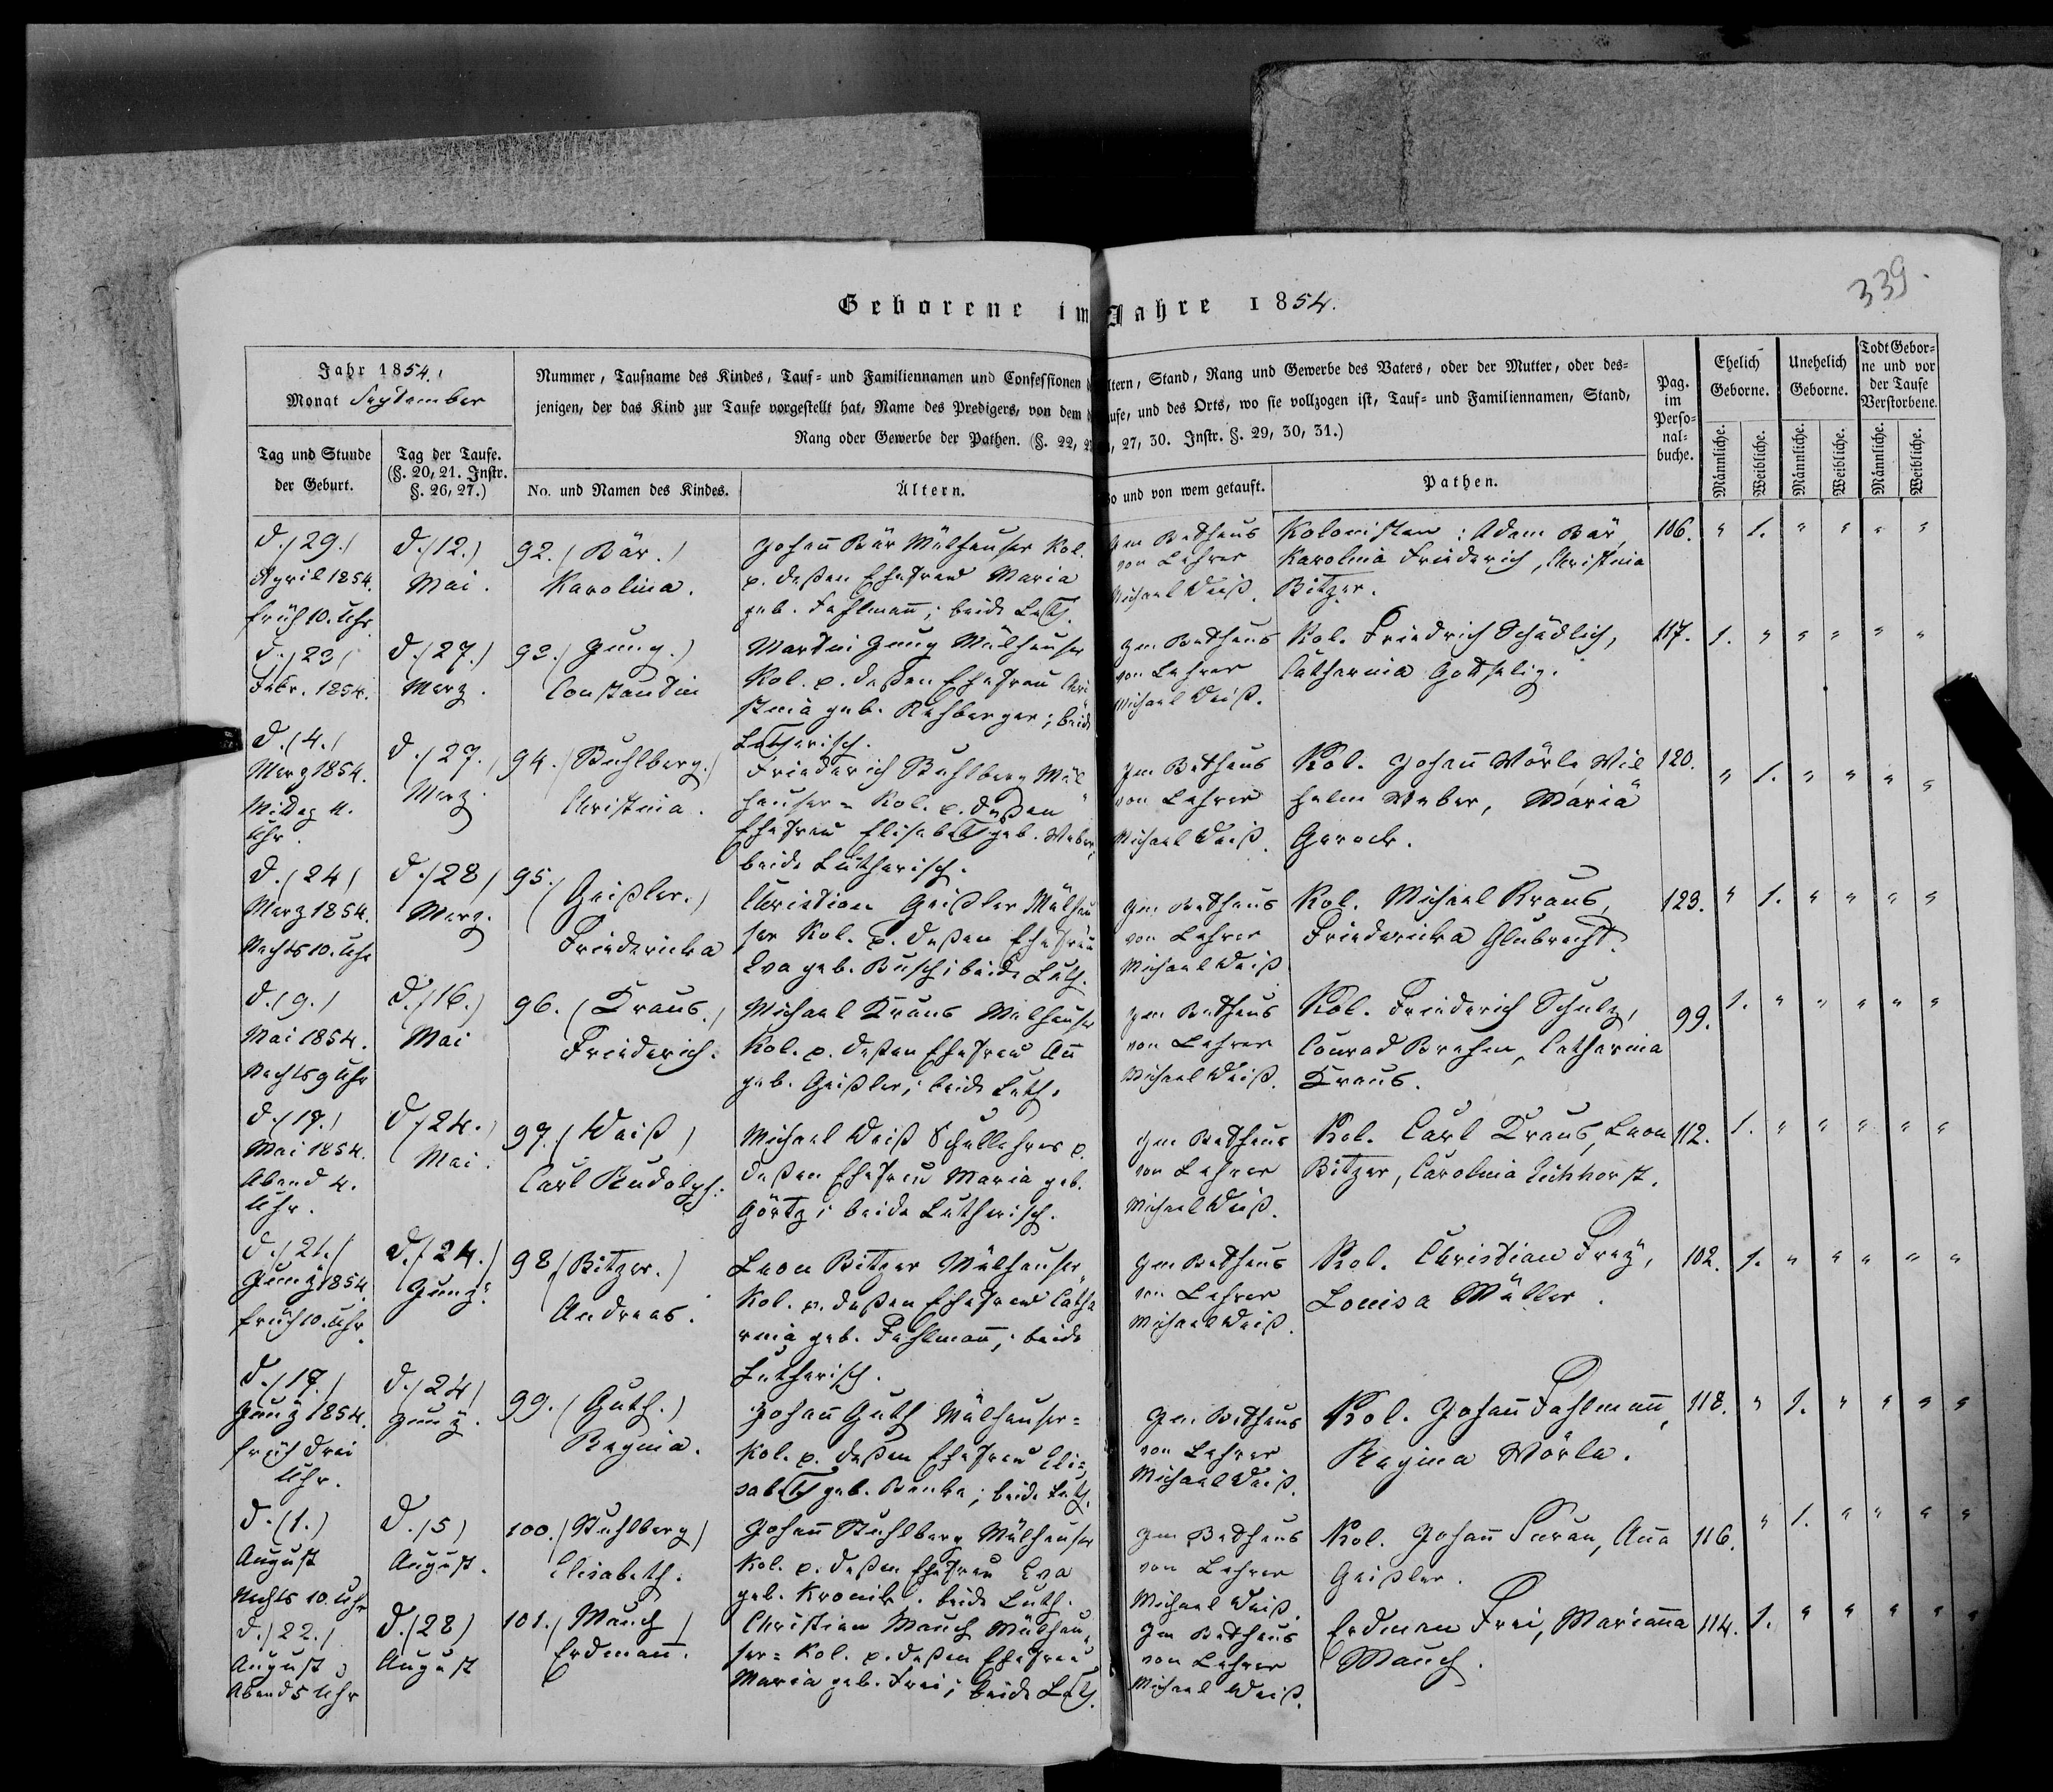 339.
Geborene im Jahre 1854.
Jahr 1854.
Monat September
Nummer, Taufname des Kindes, Tauf= und Familiennamen und Confessionen
ltern, Stand, Rang und Gewerbe des Vaters, oder der Mutter, oder des=
jenigen, der das Kind zur Taufe vorgestellt hat, Name des Predigers, von dem
ufe, und des Orts, wo sie vollzogen ist, Tauf= und Familiennamen, Stand,
Rang oder Gewerbe der Pathen. (§. 22,
27, 30. Instr. §. 29, 30, 31.)
Pag.
im
Perso=
nal=
buche.
Ehelich
Geborne.
Unehelich
Geborne.
Todt Gebor=
ne und vor
der Taufe
Verstorbene.
Tag und Stunde
der Geburt.
Tag der Taufe.
(§. 20, 21. Instr.
§. 26, 27.)
No. und Namen des Kindes.
Ältern.
o und von wem getauft.
Pathen.
Männliche.
Weibliche.
Männliche.
Weibliche.
Männliche.
Weibliche.
d. (29.)
April 1854.
früh 10. Uhr.
d. (12.)
Mai.
92. (Bär.)
Karolina.
Johann Bär Mülhauser Kol.
u. deßen Ehefrau Maria
geb. Fahlmann; beide Luth.
Im Bethaus
von Lehrer
Michael Weiß.
Kolonisten: Adam Bär,
Karolina Friederich, Christina
Bitzer.
106. " 1. " " " "
d. (23)
Febr. 1854.
d. (27.)
Merz.
93. (Jung.)
Constantin
Martin Jung Mülhauser
Kol. u. deßen Ehefrau Chri
stina geb. Rehberger; beide
Lutherisch.
Im Bethaus
von Lehrer
Michael Weiß.
Kol. Friedrich Schädlich,
Catharina Gottselig.
117. 1. " " " " "
d. (4.)
Merz 1854.
Mittag 11.
Uhr.
d. (27.)
Merz.
94. (Stuhlberg.)
Christina.
Friederich Stuhlberg Mül
hauser = Kol. u. deßen
Ehefrau Elisabeth geb. Weber;
beide Lutherisch.
Im Bethaus
von Lehrer
Michael Weiß.
Kol. Johann Wörle, Wil
helm Weber, Maria
Gerock.
120. " 1. " " " "
d. (24)
Merz 1854.
Nachts 10. Uhr
d. (28)
Merz.
95. (Geißler.)
Friedericka
Christian Geißler Mülhau
ser Kol. u. deßen Ehefrau
Eva geb. Busch; beide Luth.
Im Bethaus
von Lehrer
Michael Weiß
Kol. Michael Kraus,
Friedericka Glubrecht.
123. " 1. " " " "
d. (9.)
Mai 1854.
Nachts 9 Uhr
d. (16.)
Mai
96. (Kraus.)
Friederich.
Michael Kraus Mülhauser
Kol. u. deßen Ehefrau An
geb. Geißler; beide Luth.
Im Bethaus
von Lehrer
Michael Weiß.
Kol. Friederich Schulz,
Conrad Brehm, Catharina
Kraus.
99. 1. " " " " "
d. (17.)
Mai 1854.
Abend 4.
Uhr.
d. (24.)
Mai.
97. (Weiß)
Carl Rudolph:
Michael Weiß Schullehrer u.
deßen Ehefrau Maria geb.
Görtz; beide Lutherisch.
Im Bethaus
von Lehrer
Michael Weiß.
Kol. Carl Kraus, Leon
Bitzer, Carolina Eichhorst.
112. 1. " " " " "
d. (21.)
Juny 1854.
früh 10. Uhr.
d. (24.)
Juny.
98. (Bitzer.)
Andreas.
Leon Bitzer Mülhauser
Kol. u. deßen Ehefrau Catha
rina geb. Fahlmann; beide
Lutherisch.
Im Bethaus
von Lehrer
Michael Weiß.
Kol. Christian Frey,
Louisa Müller.
102. 1. " " " " "
d. (17.)
Juny 1854.
früh drei
Uhr.
d. (24)
Juny.
99. (Guth.)
Regina.
Johann Guth Mülhauser =
Kol. u. deßen Ehefrau Eli=
sabeth geb. Benke; beide Luth.
Im Bethaus
von Lehrer
Michael Weiß.
Kol. Johann Fahlmann,
Regina Wörle.
118. " 1. " " " "
d. (1.)
August
Nachts 10. Uhr
d. (5)
August.
100. (Stuhlberg)
Elisabeth.
Johann Stuhlberg Mülhauser
Kol. u. deßen Ehefrau Eva
geb. Kronik; beide Luth.
Im Bethaus
von Lehrer
Michael Weiß.
Kol. Johann Anna
Geißler.
116. " 1. " " " "
d. (22.)
August
Abend 5 Uhr
d. (28)
August
101. (Mauch)
Erdmann.
Christian Mauch Mülhau
ser = Kol. u. deßen Ehefrau
Maria geb. Frei; beide Luth.
Im Bethaus
von Lehrer
Michael Weiß.
Erdman Frei, Marianna
Mauch.
114. 1. " " " " "